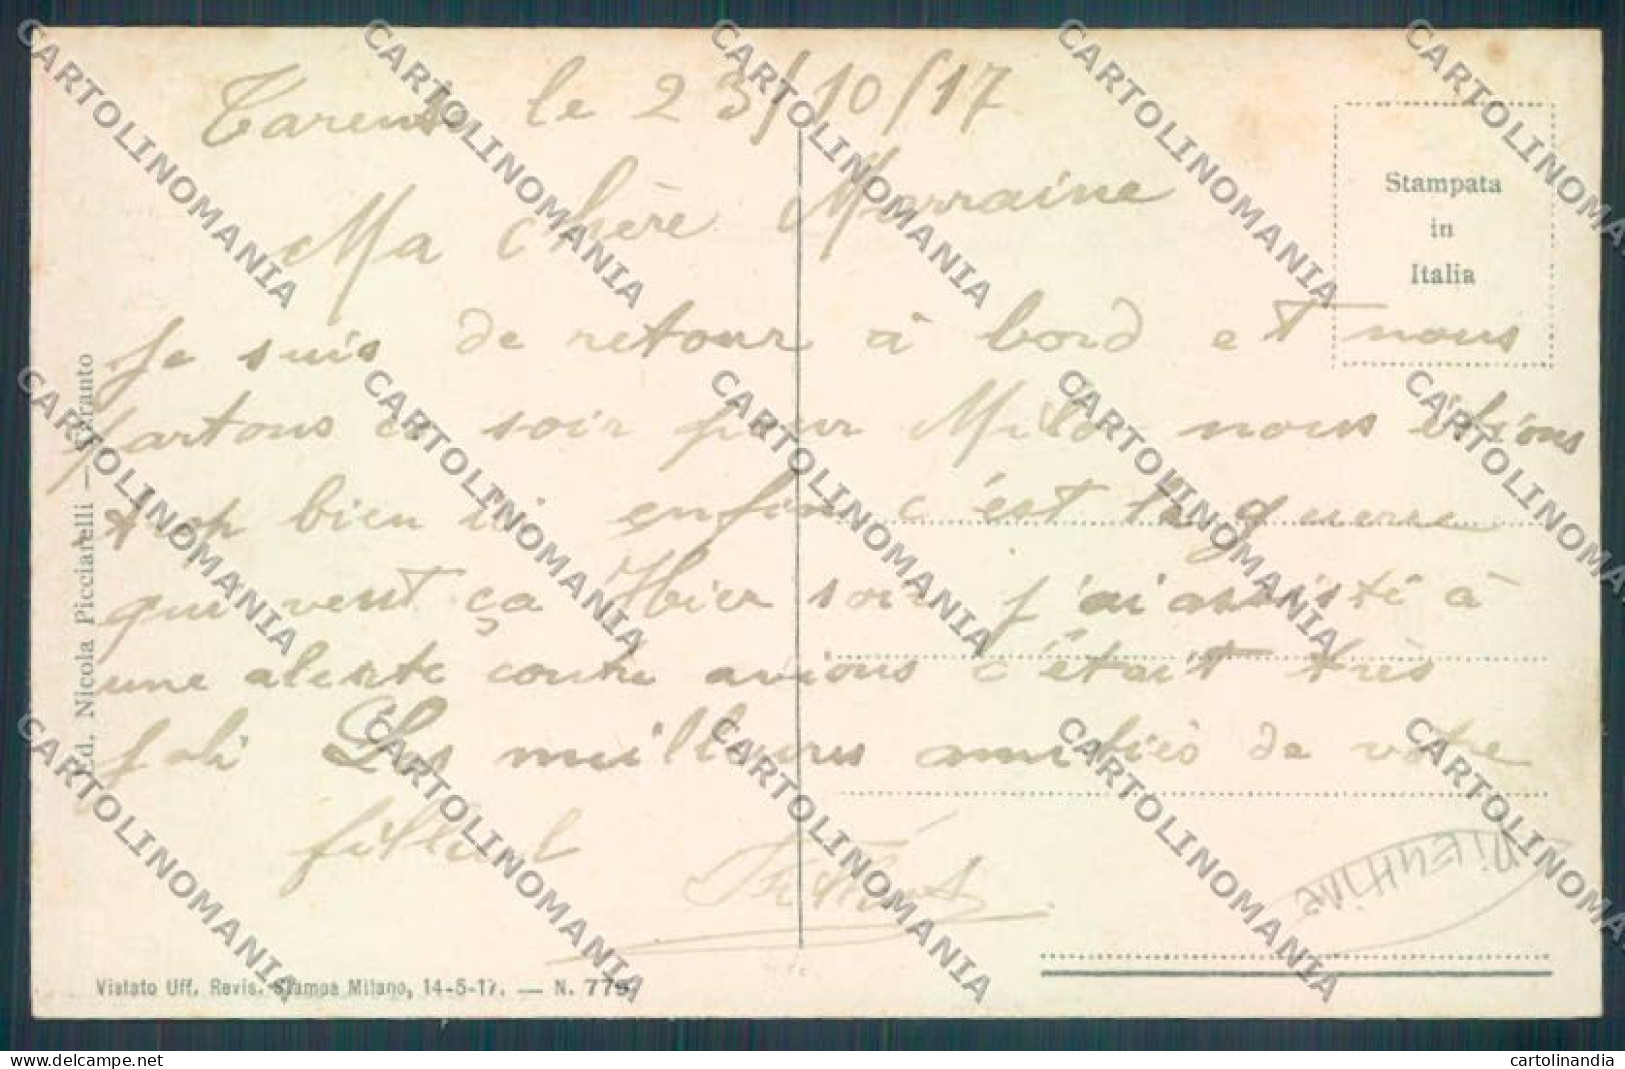 Tarente le 23/10/17
Ma chère Marraine
Je suis de retour à bord et nous
partons ce soir pour Milo nous étions
trop bien ici enfin c'est la guerre
qui veut ça Hier soir j'ai assisté à
une alerte contre avions c'était très
joli Les meilleures amitiés de votre
filleul
Stampata
in
Italia
Ed. Nicola Picciarelli — Taranto
Vistato Uff. Revis. Stampa Milano, 14-5-17. — N. 779
CARTOLINOMANIA
delcampe.net
cartolinandia